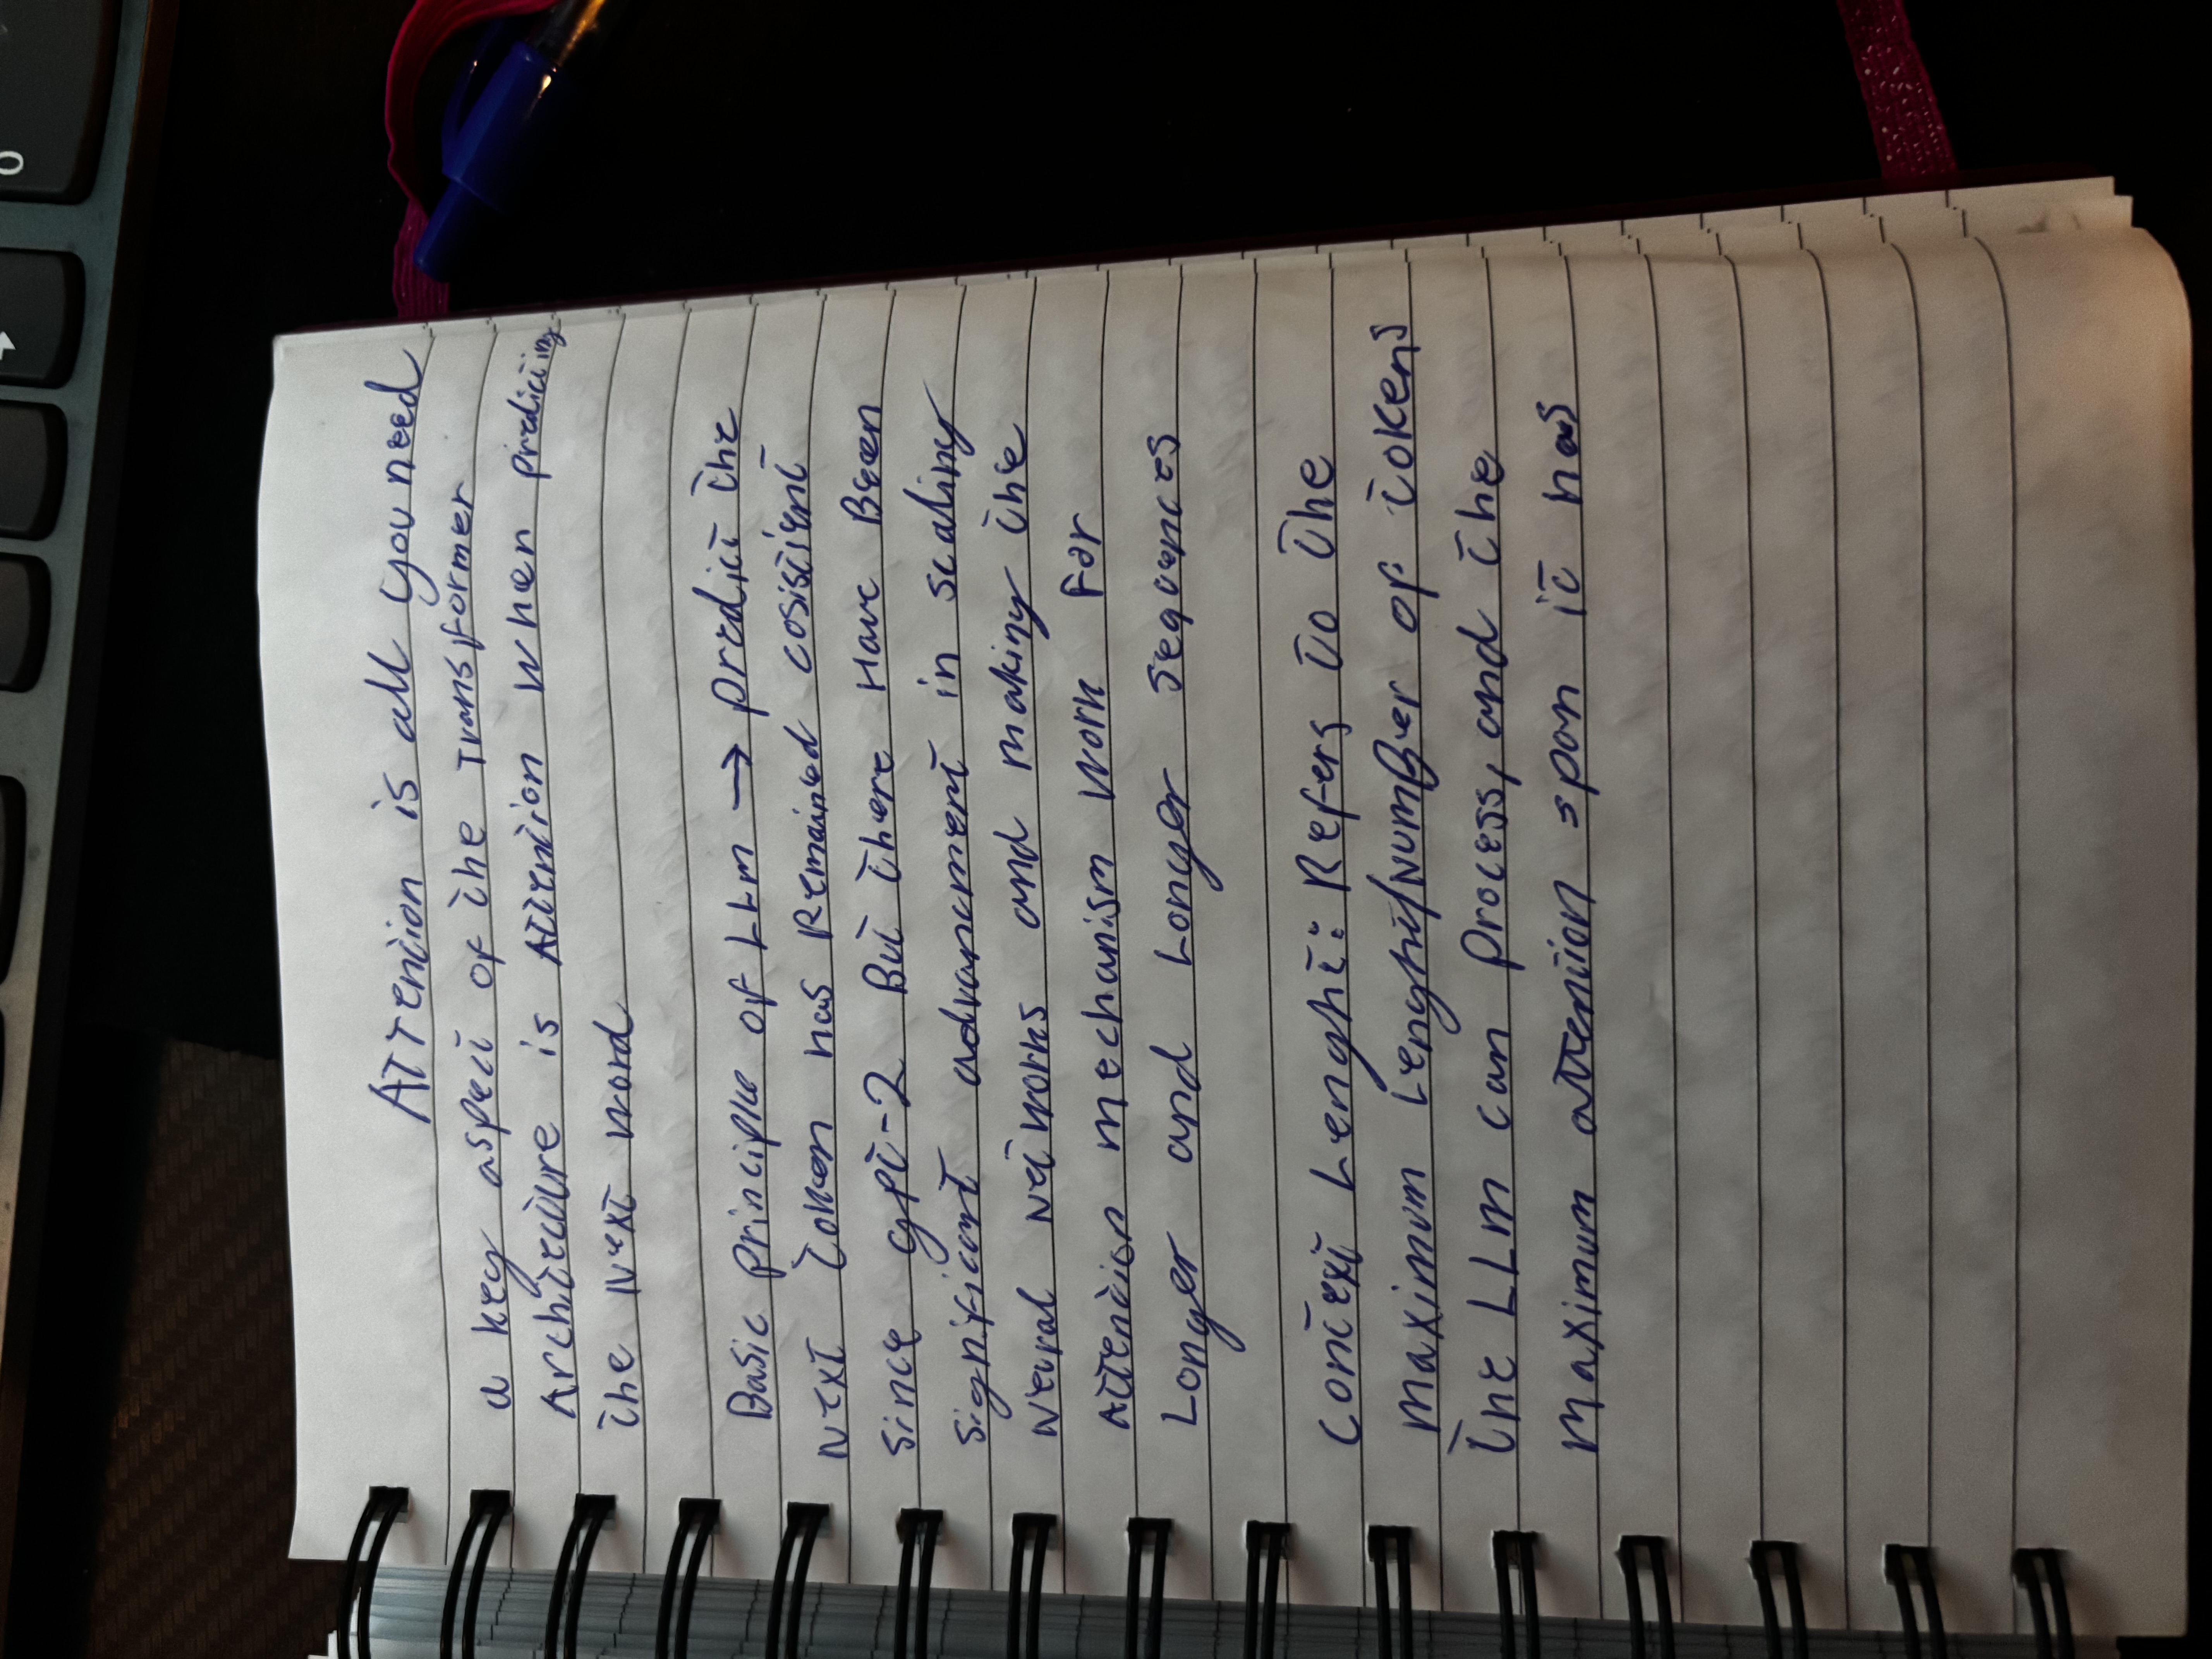 Attention is all you need
a key aspect of the Transformer
Architecture is Attention when predicting
the Next word
Basic principle of LLM → predict the
Next token has Remained cosistient
since gpt-2 But there Have Been
significant advancment in scaling
Neural Networks and making the
Attention mechanism work For
Longer and Longer sequences
Context Lenght: Refers to the
maximum Lenght/NumBer of tokens
the LLm can process, and the
maximum attention span it has